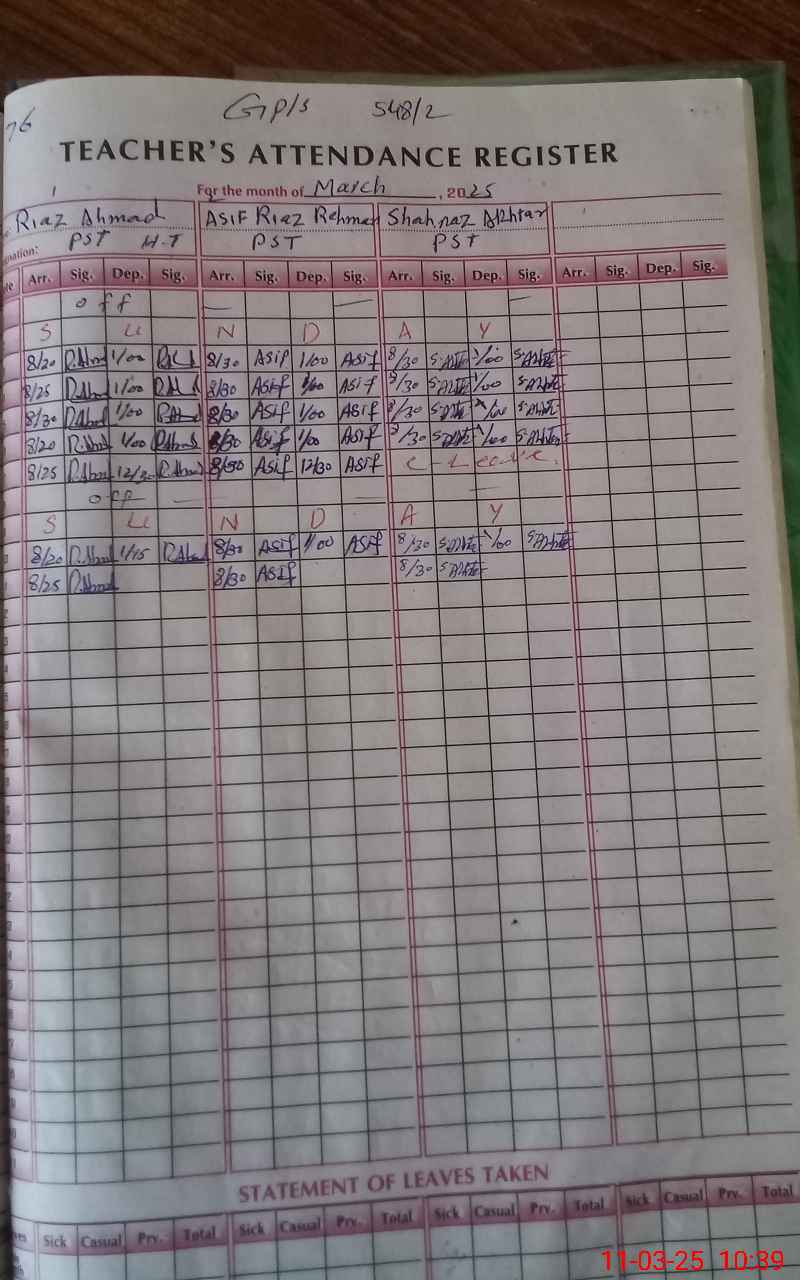 76
GP/S 548/2
TEACHER'S ATTENDANCE REGISTER
For the month of March, 2025
Riaz Ahmad ASIF Riaz Rehman Shahnaz Akhtar
nation: PST H.T PST PST
te Arr. Sig. Dep. Sig. Arr. Sig. Dep. Sig. Arr. Sig. Dep. Sig. Arr. Sig. Dep. Sig.
off
S U N D A Y
8/20 R.Ahmad 1/00 8/30 Asif 1/00 Asif 8/30 S.Akhtar 1/00 S.Akhtar
8/25 R.Ahmad 1/00 8/30 Asif 1/00 Asif 8/30 S.Akhtar 1/00 S.Akhtar
8/30 R.Ahmad 1/00 R.Ahmad 8/30 Asif 1/00 Asif 8/30 S.Akhtar 1/00 S.Akhtar
8/20 R.Ahmad 1/00 R.Ahmad 8/30 Asif 1/00 Asif 8/30 S.Akhtar 1/00 S.Akhtar
8/25 R.Ahmad 12/30 R.Ahmad 8/30 Asif 12/30 Asif C-Leave.
off
S U N D A Y
8/20 R.Ahmad 1/15 R.Ahmad 8/30 Asif 1/00 Asif 8/30 S.Akhtar 1/00 S.Akhtar
8/25 R.Ahmad 8/30 Asif 8/30 S.Akhtar
STATEMENT OF LEAVES TAKEN
Sick Casual Prv. Total Sick Casual Prv. Total Sick Casual Prv. Total Sick Casual Prv. Total
11-03-25 10:39